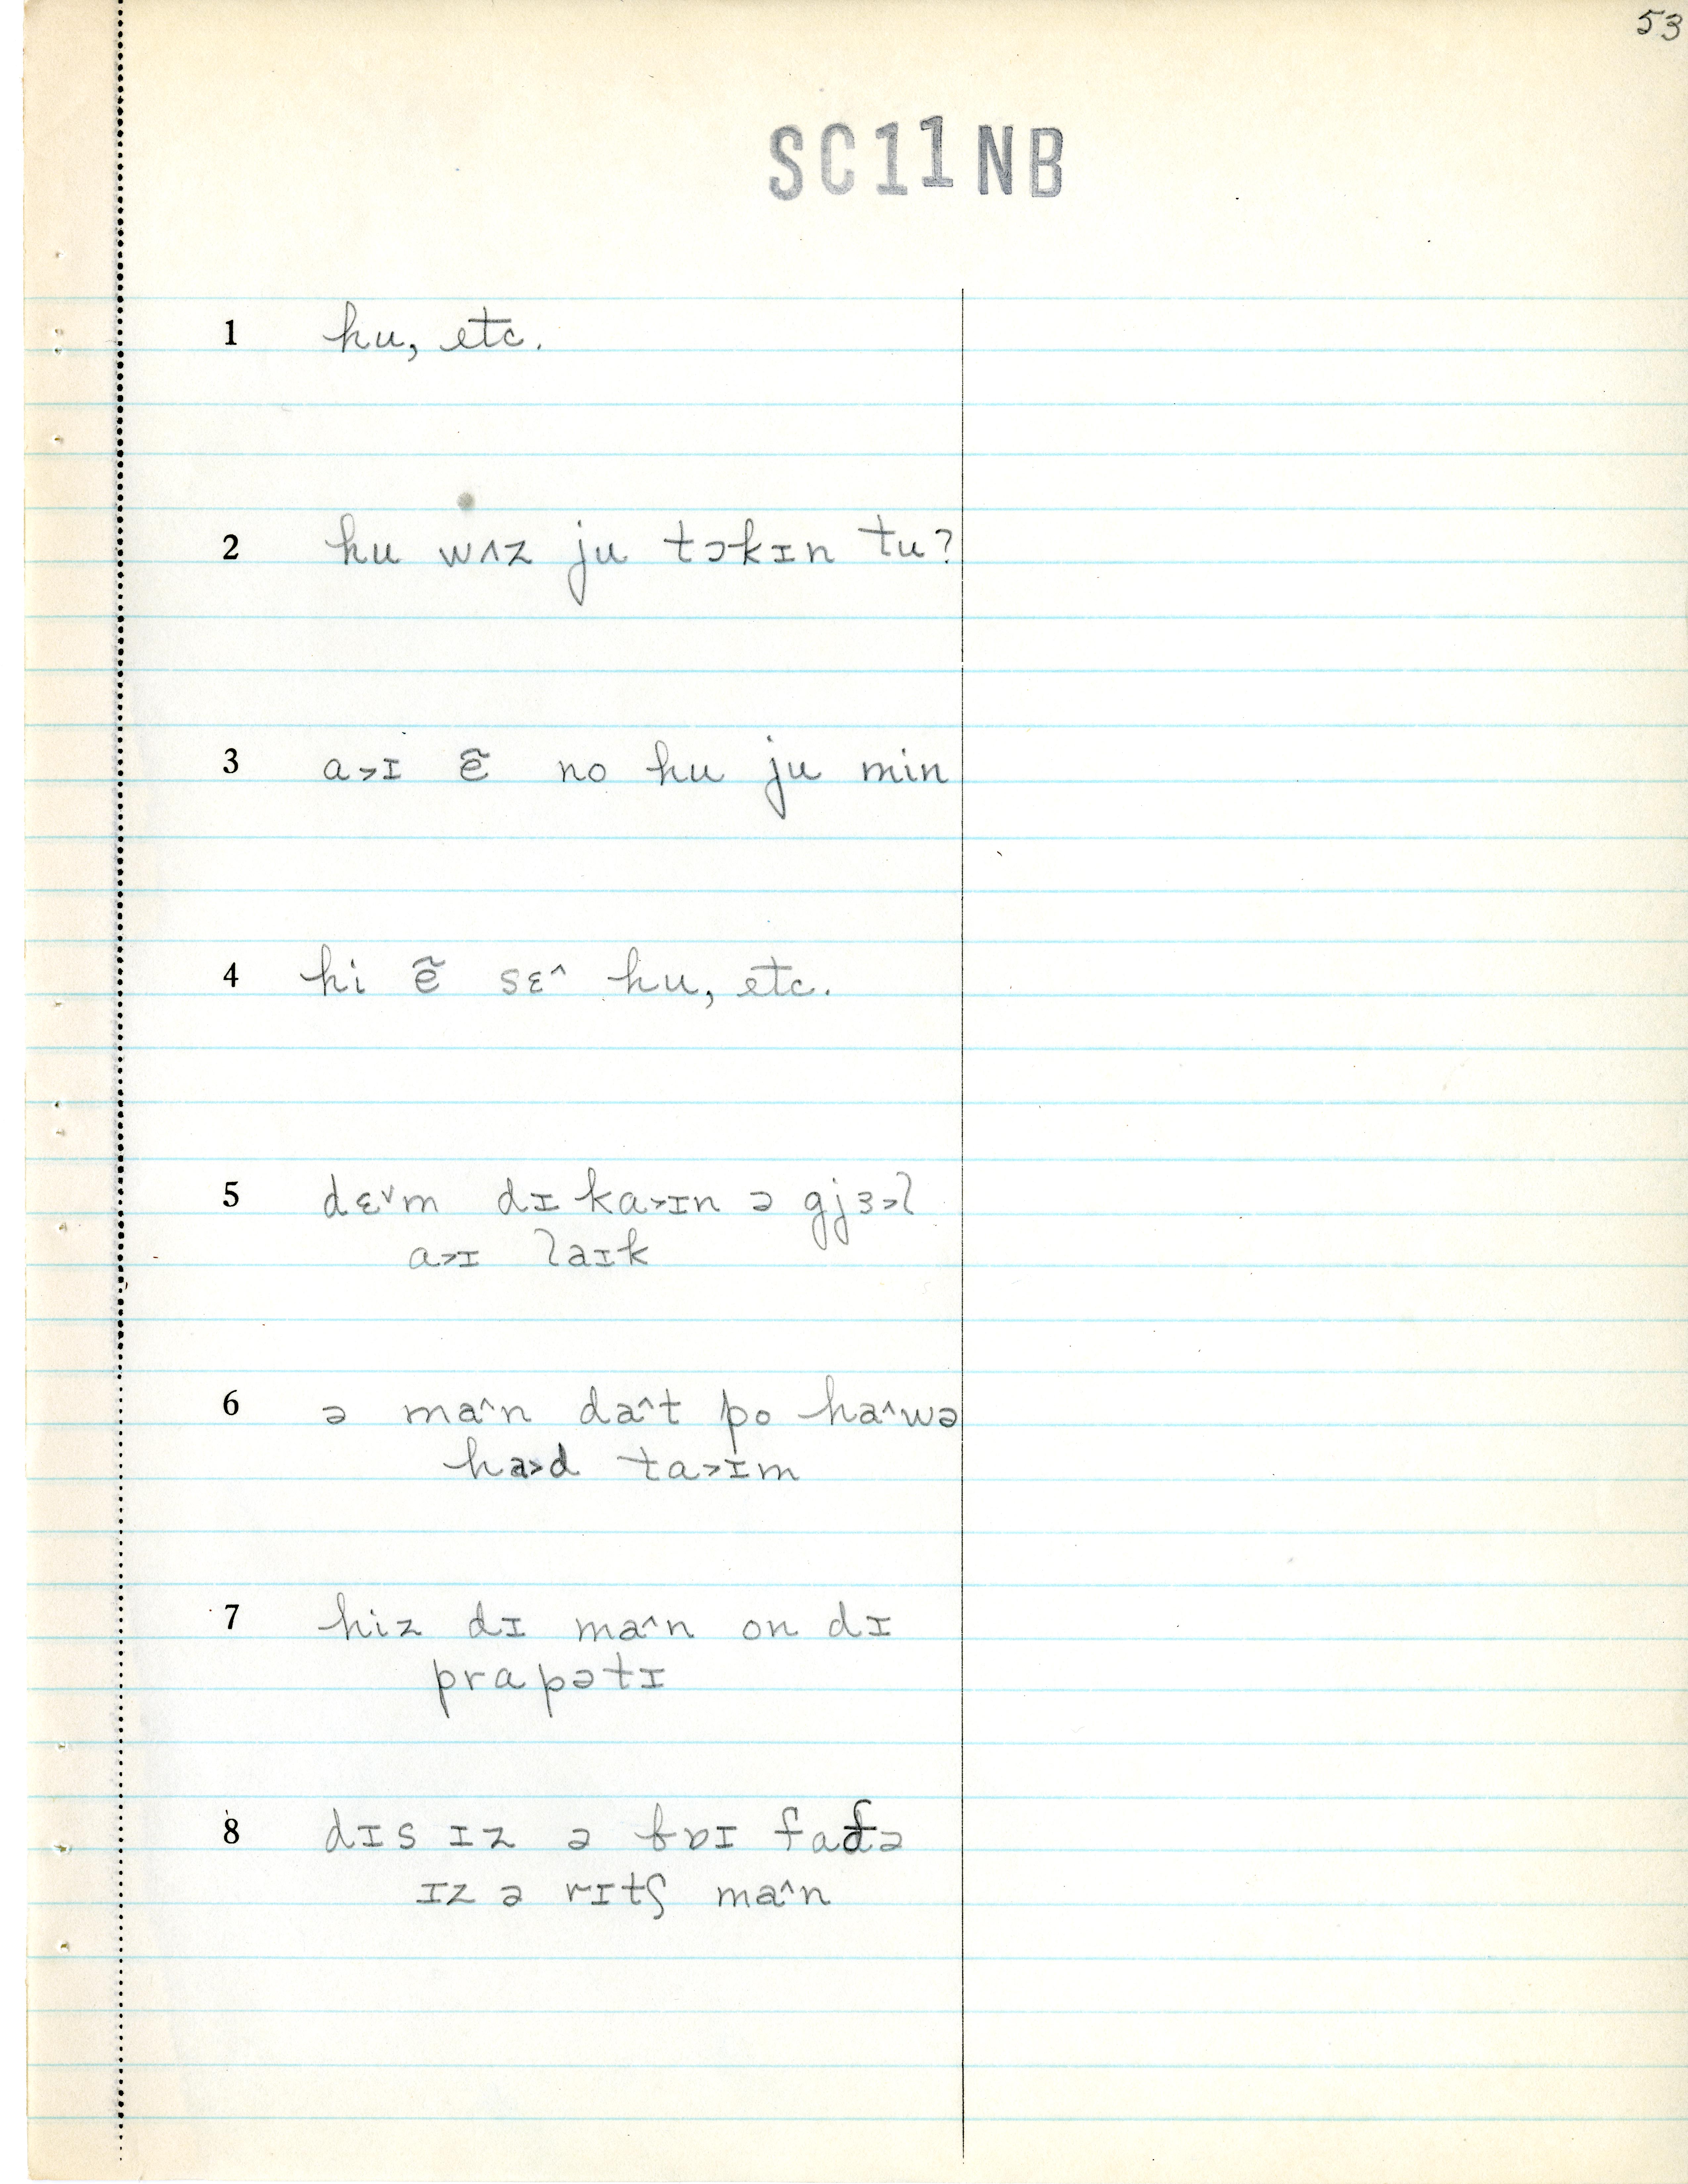 53
SC11NB
1 hu, etc.
2 hu wʌz ju tɔkɪn tu?
3 a˃ɪ ẽ no hu ju min
4 hi ẽ sɛ˄ hu, etc.
5 dɛ˅m dɪ ka˃ɪn ə gjɜ˃l
a˃ɪ laɪk
6 ə ma˄n da˄t po ha˄wə
ha˃d ta˃ɪm
7 hiz dɪ ma˄n on dɪ
prapətɪ
8 dɪs ɪz ə bɒɪ fadə
ɪz ə rɪtʃ ma˄n